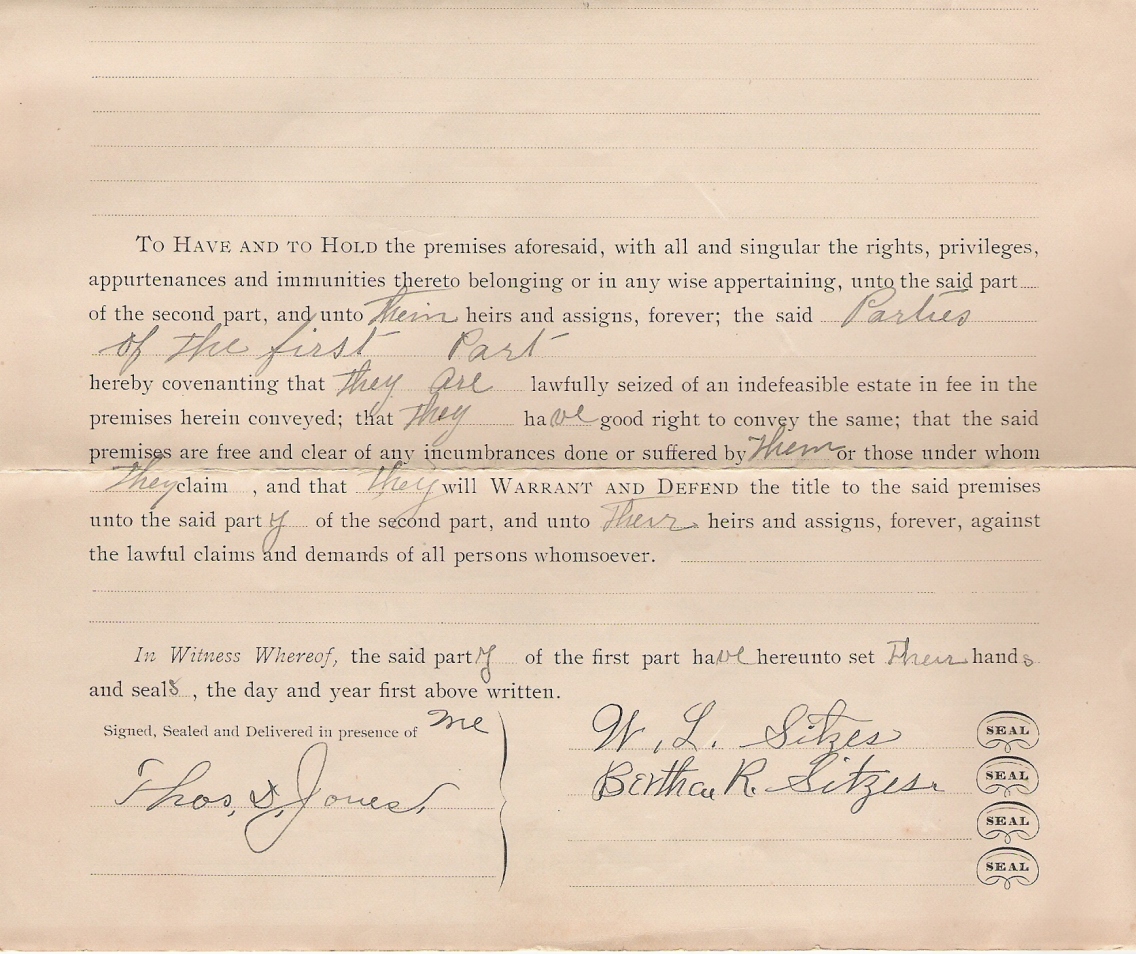 TO HAVE AND TO HOLD the premises aforesaid, with all and singular the rights, privileges,
appurtenances and immunities thereto belonging or in any wise appertaining, unto the said part
of the second part, and unto Their heirs and assigns, forever; the said Parties
of the first Part
hereby covenanting that they are lawfully seized of an indefeasible estate in fee in the
premises herein conveyed; that they have good right to convey the same; that the said
premises are free and clear of any incumbrances done or suffered by Them or those under whom
They claim , and that they will WARRANT AND DEFEND the title to the said premises
unto the said party of the second part, and unto Their heirs and assigns, forever, against
the lawful claims and demands of all persons whomsoever.
In Witness Whereof, the said party of the first part have hereunto set Their hands
and seals , the day and year first above written.
Signed, Sealed and Delivered in presence of me
Thos. D. Jones.
W. L. Sitzes SEAL
Bertha R. Sitzes SEAL
SEAL
SEAL